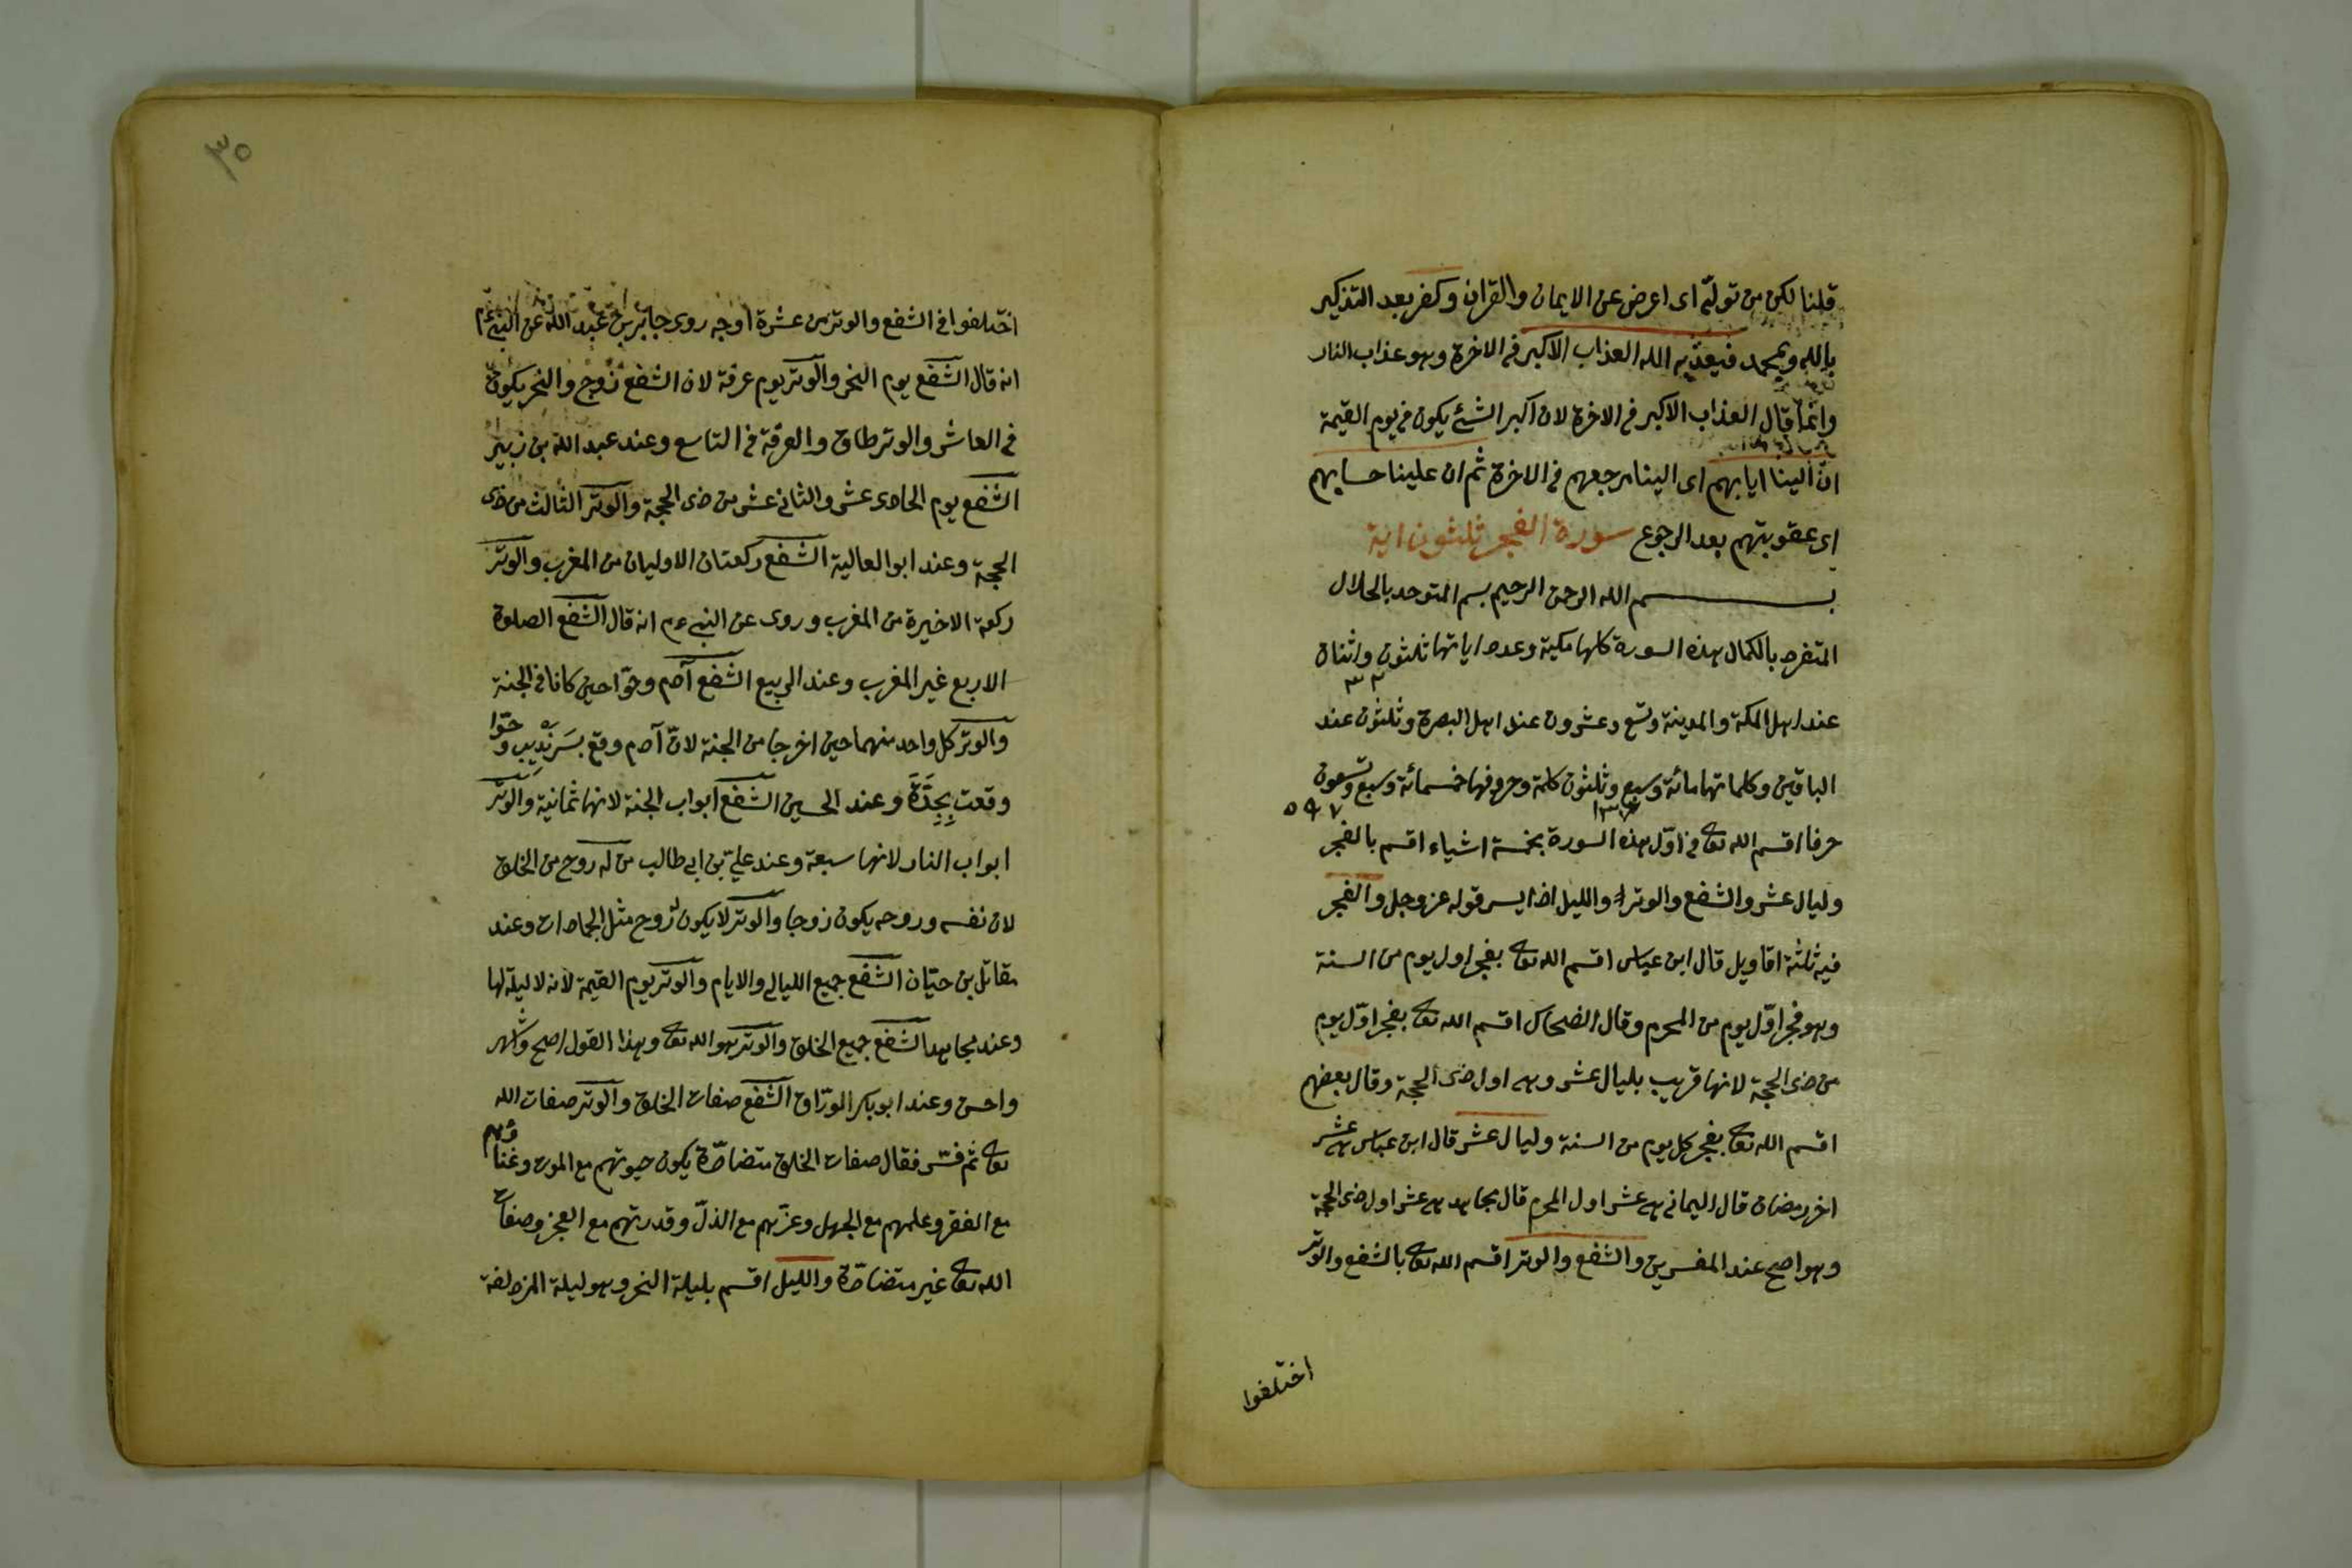 قلنا لكن من تولّى اى اعرض عن الايمان والقران وكفر بعد التذكير
بالله وبمحمد فيعذّبه الله العذاب الاكبر فى الاخرة وهو عذاب النار
وانّما قال العذاب الاكبر فى الاخرة لان اكبر الشئ يكون فى يوم القيمة
انّ الينا ايابهم اى الينا مرجعهم فى الاخرة ثم ان علينا حسابهم
اى عقوبتهم بعد الرجوع سورة الفجر ثلثون اية
بسم الله الرحمن الرحيم بسم المتوحد بالجلال
المتفرد بالكمال هذه السورة كلها مكية وعدد اياتها ثلثون واثنان
٣٢
عند اهل المكة والمدينة وتسع وعشرون عند اهل البصرة وثلثون عند
الباقين وكلماتها مائة وسبع وثلثون كلمة وحروفها خمسمائة وسبع وتسعون
١٣٧ ٥٩٧
حرفا اقسم الله تعالى فى اوّل هذه السورة بخمسة اشياء اقسم بالفجر
وليال عشر والشفع والوتر والليل اذا يسر قوله عز وجل والفجر
فيه ثلثة اقاويل قال ابن عباس اقسم الله تعالى بفجر اول يوم من السنة
وهو فجر اوّل يوم من المحرم وقال الضحاك اقسم الله تعالى بفجر اوّل يوم
من ذى الحجة لانها قريب بليال عشر وهى اول ذى الحجة وقال بعضهم
اقسم الله تعالى بفجر كل يوم من السنة وليال عشر قال ابن عباس هى عشر
اخر رمضان قال اليمانى هى عشر اول المحرم قال مجاهد هى عشر اول ذى الحجة
وهو اصح عند المفسرين والشفع والوتر اقسم الله تعالى بالشفع والوتر
اختلفوا
٣٥
اختلفوا فى الشفع والوتر من عشرة اوجه روى جابر بن عبد الله عن النبى عم
انه قال الشفع يوم النحر والوتر يوم عرفة لان الشفع زوج والنحر يكون
فى العاشر والوتر طاق والعرفة فى التاسع وعند عبد الله بن زبير
الشفع يوم الحادى عشر والثانى عشر من ذى الحجة والوتر الثالث من ذى
الحجة وعند ابو العالية الشفع ركعتان الاوليان من المغرب والوتر
ركعة الاخيرة من المغرب وروى عن النبى عم انه قال الشفع الصلوة
الاربع غير المغرب وعند الربيع الشفع آدم وحوّا حين كانا فى الجنة
والوتر كل واحد منهما حين اخرجا من الجنة لانّ آدم وقع بسَرَنْدِيبِ وحوّا
وقعت بِجِدَّةَ وعند الحسين الشفع ابواب الجنة لانها ثمانية والوتر
ابواب النار لانها سبعة وعند علىّ بن ابى طالب من له روح من الخلق
لان نفسه وروحه يكون زوجا والوتر لا يكون له روح مثل الجمادات وعند
مقاتل بن حيّان الشفع جميع الليالى والايام والوتر يوم القيمة لانه لا ليلة لها
وعند مجاهد الشفع جميع الخلق والوتر هو الله تعالى وهذا القول اصح واشهر
واحسن وعند ابو بكر الورّاق الشفع صفات الخلق والوتر صفات الله
تعالى ثم فسّر فقال صفات الخلق متضادّة يكون حيوتهم مع الموت وغناؤهم
مع الفقر وعلمهم مع الجهل وعزّهم مع الذلّ وقدرتهم مع العجز وصفات
الله تعالى غير متضادّة والليل اقسم بليلة النحر وهو ليلة المزدلفة